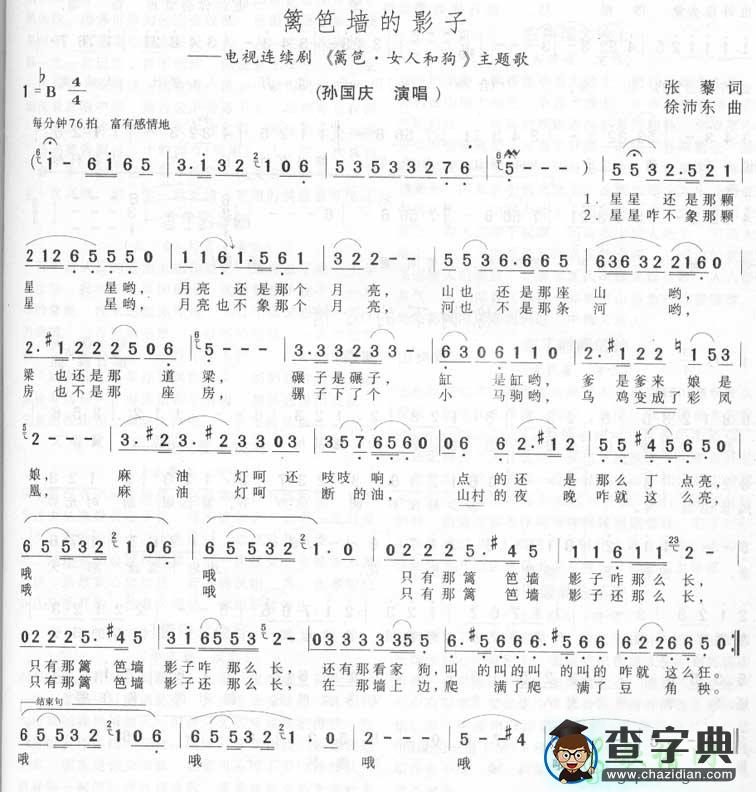 篱笆墙的影子
——电视连续剧《篱笆·女人和狗》主题歌
1=♭B 4/4
(孙国庆 演唱)
张藜 词
徐沛东 曲
每分钟76拍 富有感情地
(i - 6i65 | 3·i32 2106 | 53533276 | 5 - - - ) | 5532·521
1.星星 还是那颗
2.星星咋不象那颗
212655550 | 1161·561 | 322 - - | 5536·665 | 63632 2160
星 星哟, 月亮 还是那个 月 亮, 山也 还是那座 山 哟,
星 星哟, 月亮也不象那个 月 亮, 河也 不是那条 河 哟,
2·#12222506 | 5 - - - | 3·333233 - | 63061110 | 2·#122 #153
梁 也还是那 道 梁, 碾子是碾子, 缸 是缸哟, 爹 是爹来 娘 是
房 也不是那 座 房, 骡子下了个 小 马驹哟, 乌 鸡变成了彩 凤
2 - - - | 3·#23·#23303 | 35765 60 | 06 62·#12 | 55#456 50
娘, 麻 油 灯呵 还 吱吱 响, 点 的还 是 那么 丁 点亮,
凰, 麻 油 灯呵 断 的油, 山村的夜 晚 咋就 这 么亮,
65532 2106 | 65532 21·0 | 02225·#45 | 311611 2 -
哦 哦 只有那篱 笆墙 影子咋那么长,
哦 哦 只有那篱 笆墙 影子还那么长,
02225·#45 | 316553 2 - | 03333355 | 6·#566·#566 | 6226650 :‖
只有那篱 笆墙 影子咋 那么 长, 还有那看家 狗,叫 的叫的叫 的叫的 咋就 这么 狂。
只有那篱 笆墙 影子还 那么 长, 在 那墙上 边,爬 满了爬 满了 豆 角 秧。
结束句
65532 2106 | 2 - - 0 | 5 - #4
哦 哦 哦
查字典
www.chazidian.com